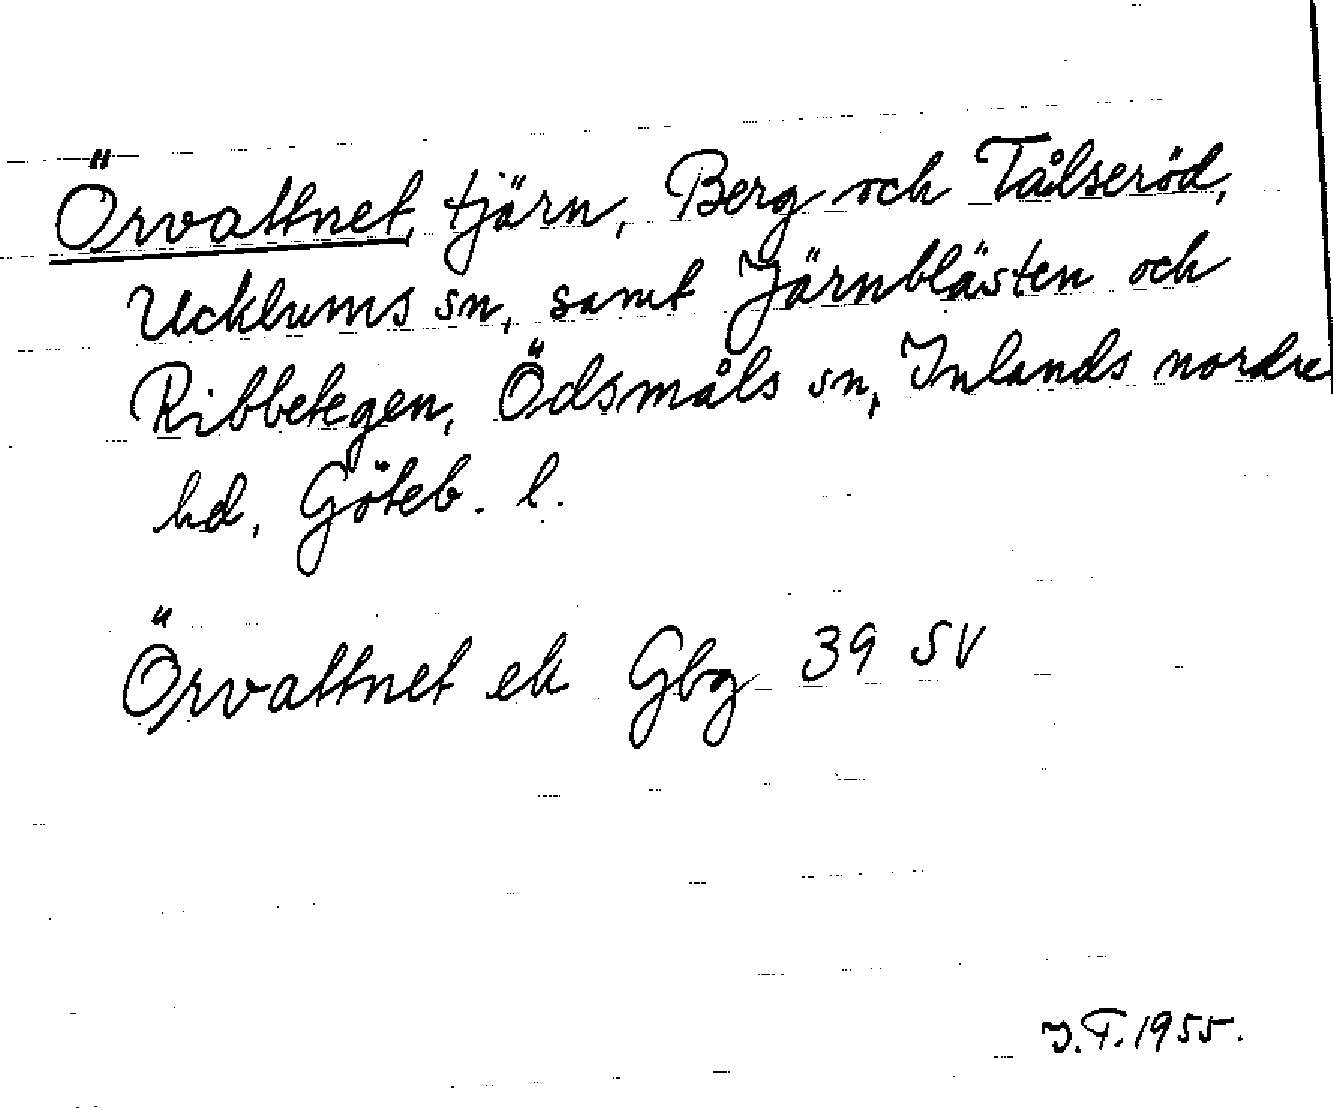 Örvattnet, tjärn, Berg och Tålseröd,
Ucklums sn, samt Järnblästen och
Ribbetegen, Ödsmåls sn, Inlands nordre
hd, Göteb. l.
Örvattnet ek Gbg 39 SV
I.F. 1955.